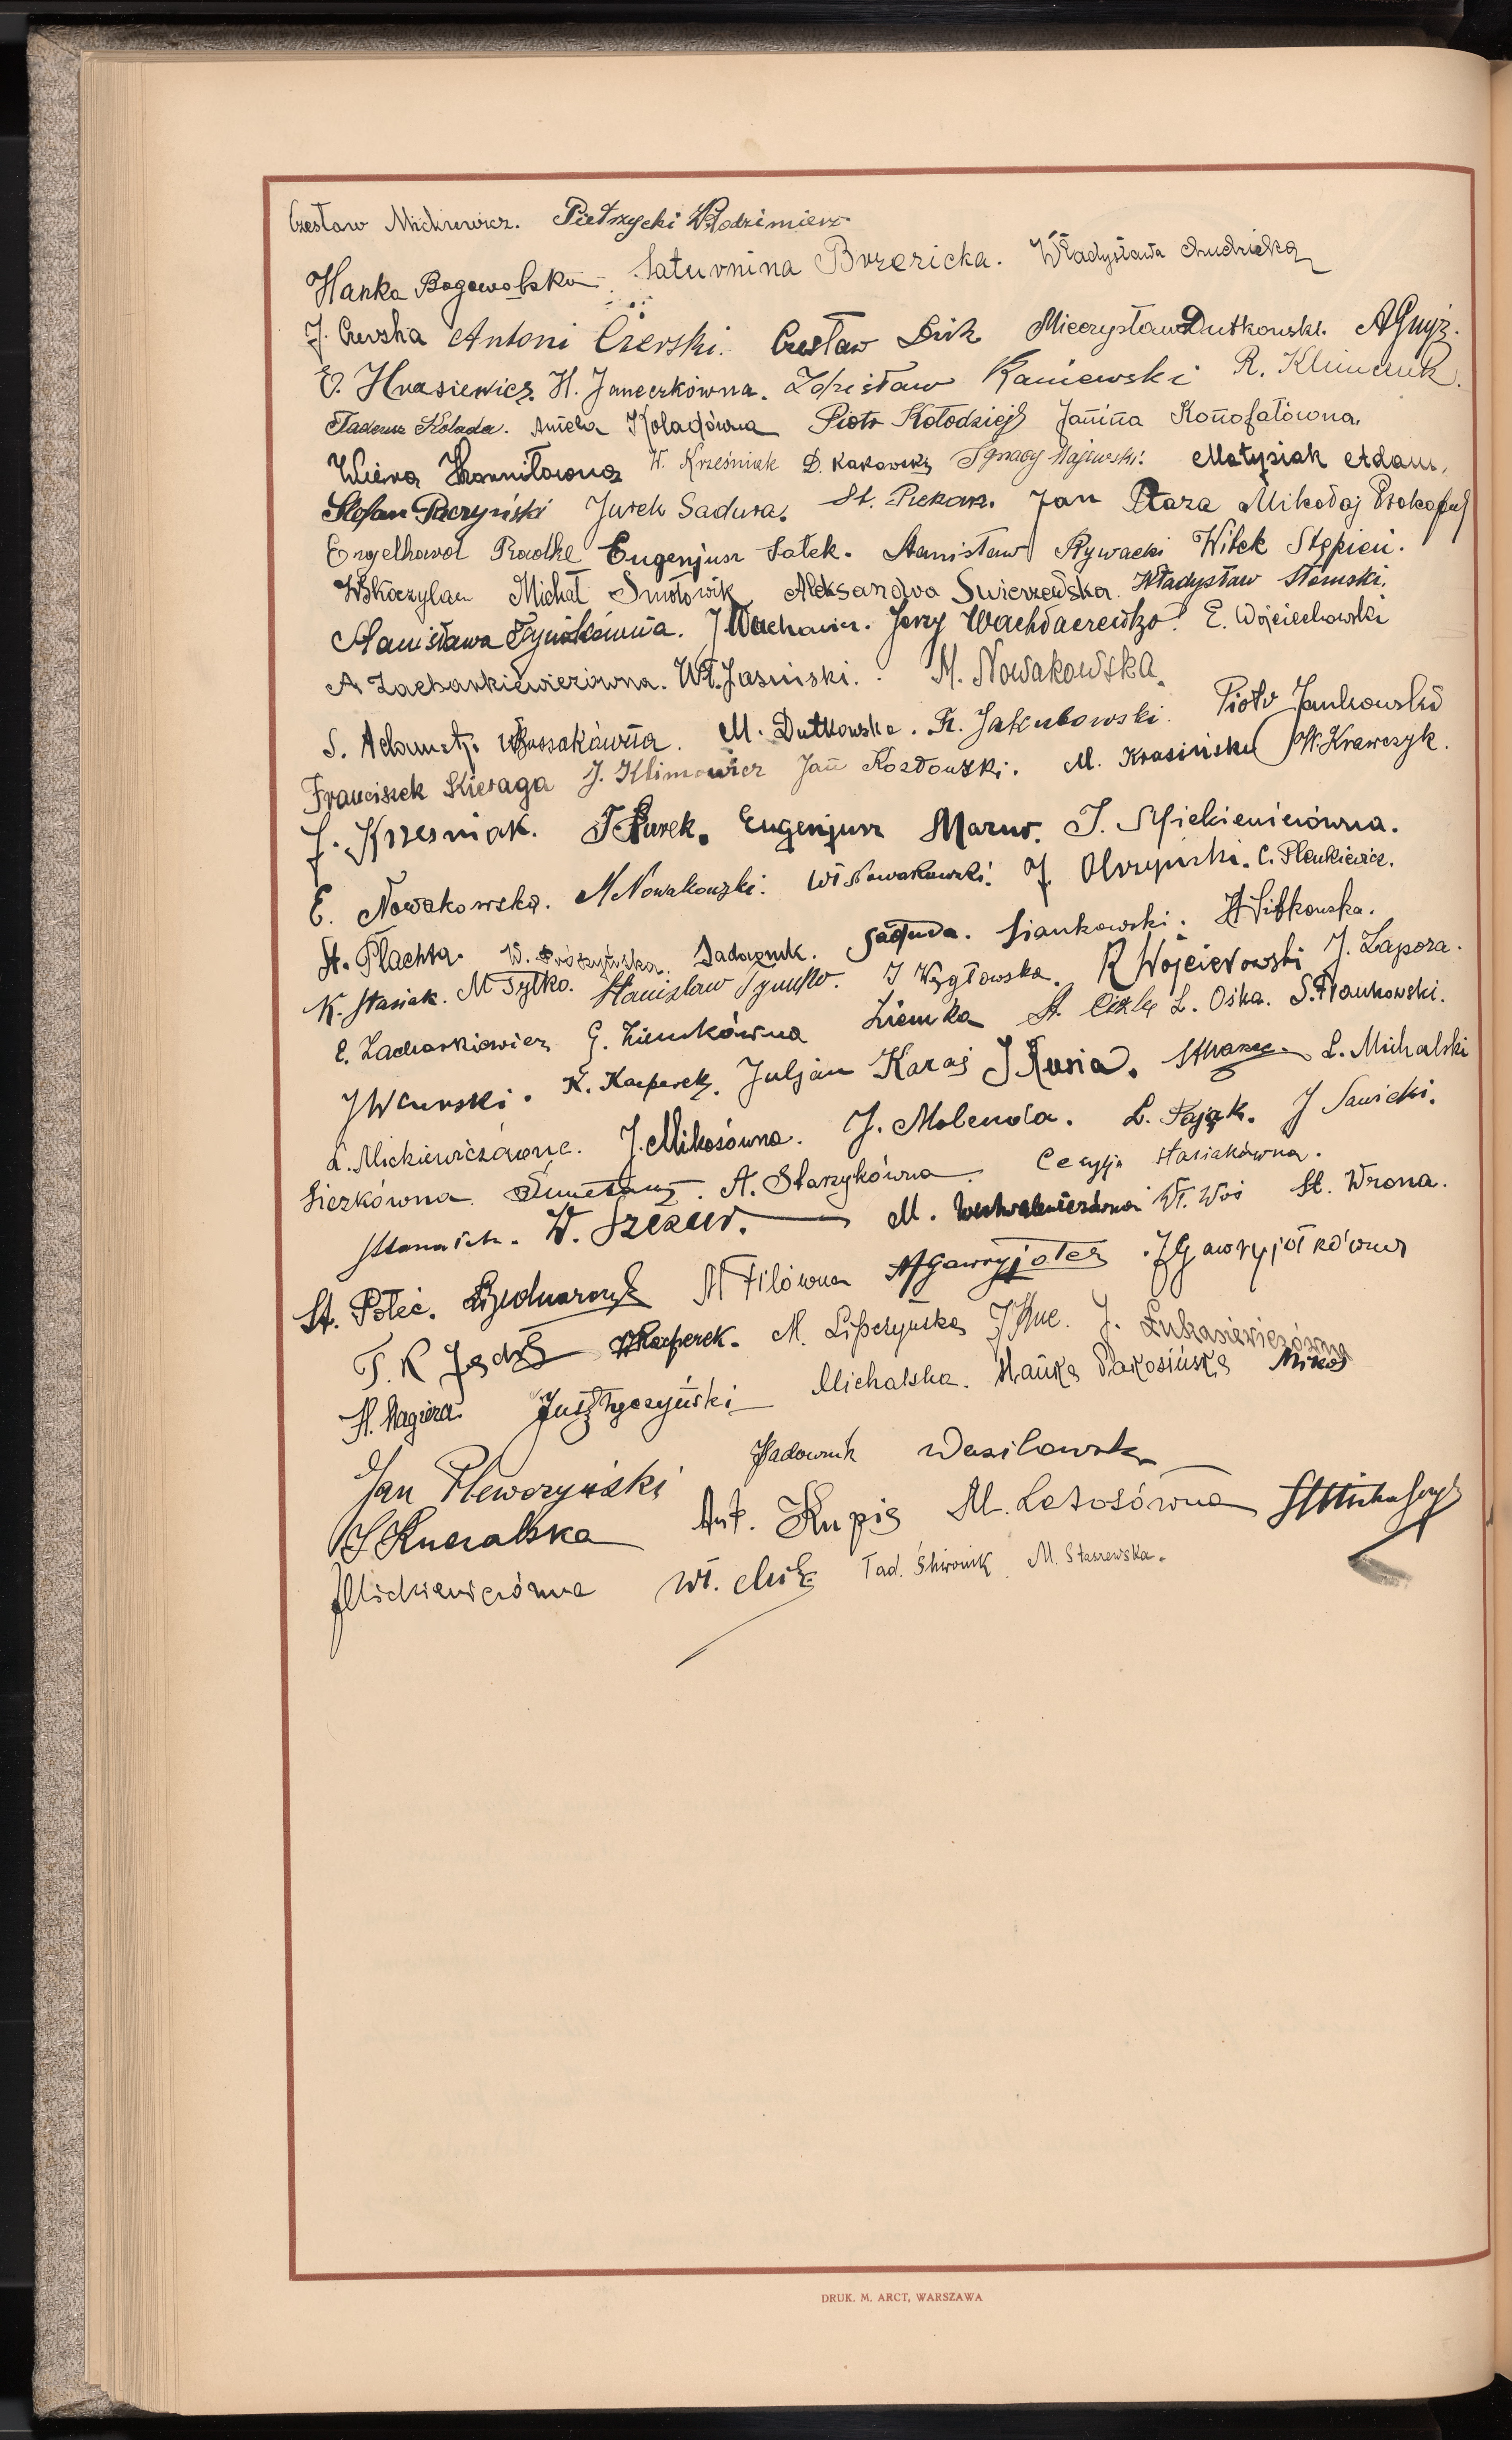 Czesław Mickiewicz. Pietrzycki Włodzimierz
Hanka Bogowolska Saturnina Brzezicka. Władysława
J. Czerska Antoni Czerski. Czesław Mieczysław Dutkowski. A Gnyź.
E. Hnasiewicz. H. Janeczkówna. Zdzisław Kaniewski R. Klimczuk.
Tadeusz Kolada. Aniela Koladówna Piotr Kołodziej Janina Konofałówna.
W. Krześniak D. Kakowska Ignacy Majewski. Matysiak Adam.
Stefan Paczyński Jurek Sadura. St. Piekarz. Jan Ptaza Mikołaj Prokopiuk
Engelhard Radke Eugenjusz Sałek. Stanisław Rywacki Witek Stępień.
W Skoczylas Michał Smołowik Aleksandra Swierzewska. Władysław Słomski.
Stanisława J Wachowicz. Jerzy E. Wojciechowski
A Zacharkiewiczówna. Wł. Jasinski. M. Nowakowska.
S. Adametz. M. Dutkowska. Fr. Jakubowski. Piotr Jankowski
Franciszek Kieraga J. Klimowicz Jan Kozłowski. M. Krasińska W. Krawczyk.
J. Krzesniak. T Kurek. Eugenjusz Marus. J. Mickiewiczówna.
E. Nowakowska. M Nowakowski. Wł Nowakowski. J. Olszyński. C. Plenkiewicz.
St. Płachta. W. Prószyńska. Sadownik. Saduda. Siankowski. H Sitkowska.
K. Stasiak. M Tytko. Stanisław J Węgłowska. R Wojciechowski J. Zapora.
E. Zacharkiewicz G. Ziemkówna Ziemka St. L. Ośka. S. Frankowski.
J W Kacperek. Juljan Karaś J Kusia. L. Michalski
L. Mickiewiczówna. J. Mikosówna. J. Molenda. L. Pająk. J Sawicki.
Siezkówna A. Starzykówna Cecylja Stasiakówna.
W. Szczew. M. Wł. Woś St. Wrona.
St. Połeć. Bednarczyk M Filówna A Gawryjołek J Gawryjołkówna
T. R W Kacperek. M. Lipczyńska J Kuc. J. Łukasiewiczówna
H. Magiera Michalska. Hanka Pakosińska Mikos
Jan Pleworzyński Sadownik Wasilowska
S Kucalska Ant. Kupis M. Letosówna
J Mickiewiczówna Wł. Tad. Skwonik M. Staszewska.
DRUK. M. ARCT, WARSZAWA